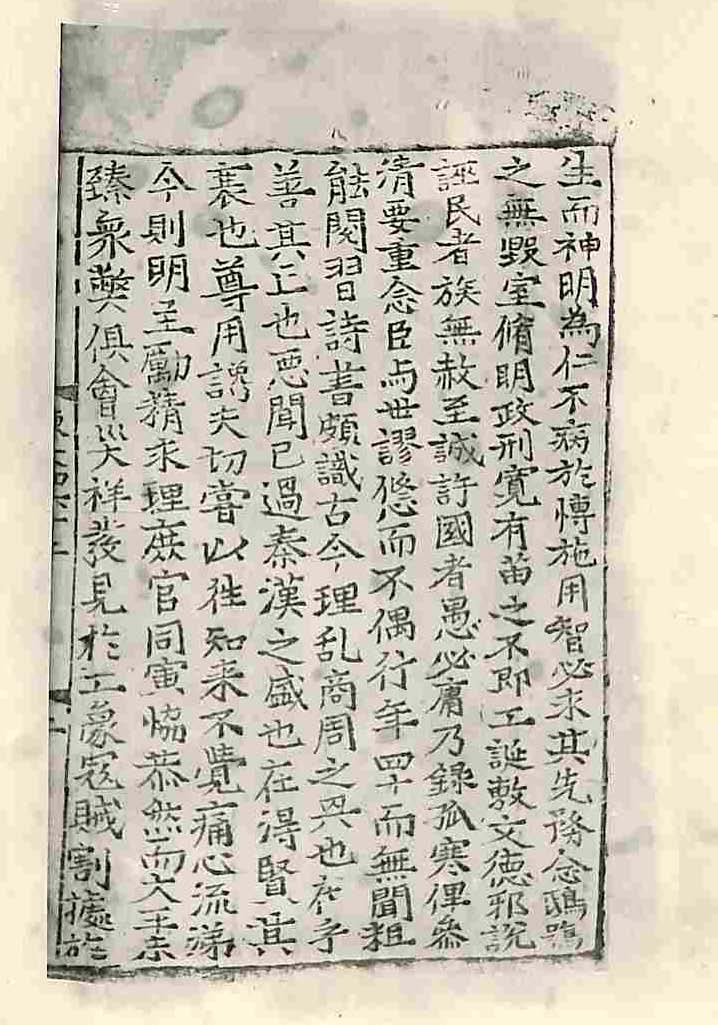 生而神明為仁不病於愽施用智必求其先務念鴟鴞
之無毀室脩明政刑寛有苗之不即工誕敷文德邪說
誣民者族無赦至誠許國者愚必庸乃錄孤寒俚叅
清要重念臣与世謬悠而不偶行年四十而無聞粗
能閱習詩書頗識古今理乱商周之興也在乎
善其亡也恶聞已過秦漢之盛也在得賢其
衰也尊用讒夫切嘗以徃知来不覺痛心流涕
今則明主勵精求理庶官同寅恊恭然而大平未
臻衆孽俱會灾祥發見於上象寇賊割據於